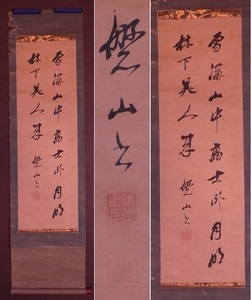 雪滿山中高士臥月明
林下美人來 山書
山書
雪滿山中高士臥月明
林下美人來 山書